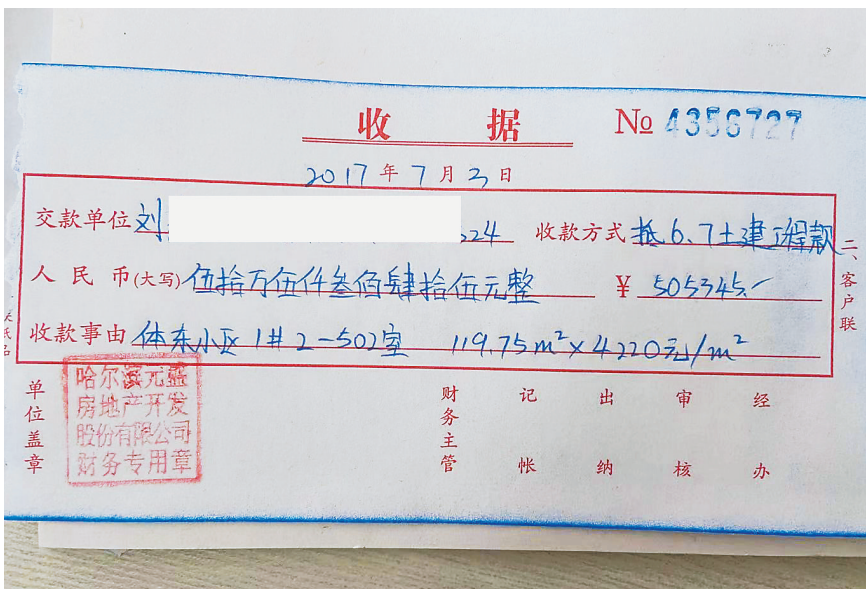 收据 No 4356727
2017年7月3日
交款单位 刘 524 收款方式 抵6.7土建工程款
人民币(大写) 伍拾万伍仟叁佰肆拾伍元整 ¥ 505345.-
收款事由 体东小区1#2-502室 119.75m²×4220元/m²
二、客户联
单位盖章
哈尔滨元盛
房地产开发
股份有限公司
财务专用章
财务主管 记帐 出纳 审核 经办